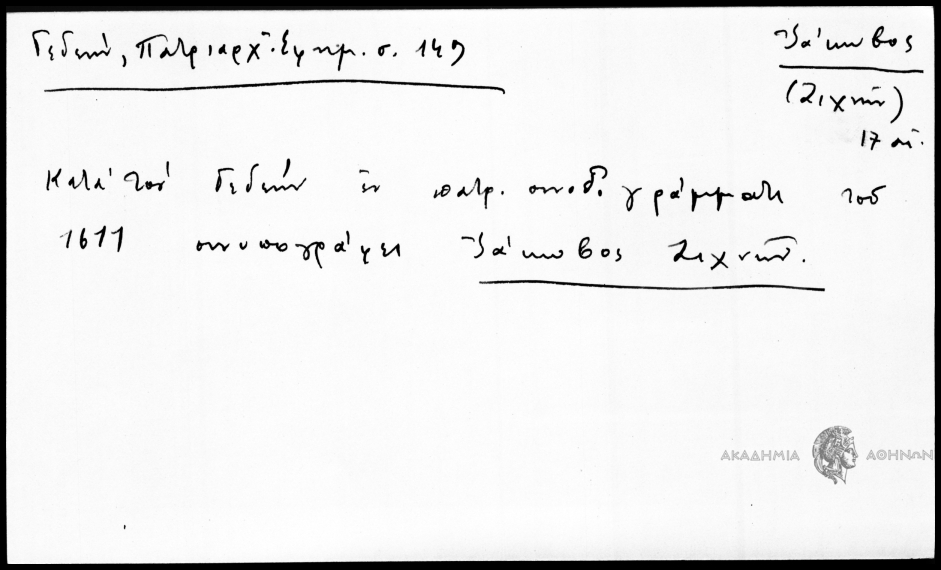 Γεδεών, Πατριαρχ. Εφημ. σ. 149
Ἰάκωβος
(Ζιχνῶν)
17 αἰ.
Κατά τόν Γεδεών ἐν πατρ. συνοδ. γράμματι τοῦ
1611 συνυπογράφει Ἰάκωβος Ζιχνῶν.
ΑΚΑΔΗΜΙΑ ΑΘΗΝΩΝ